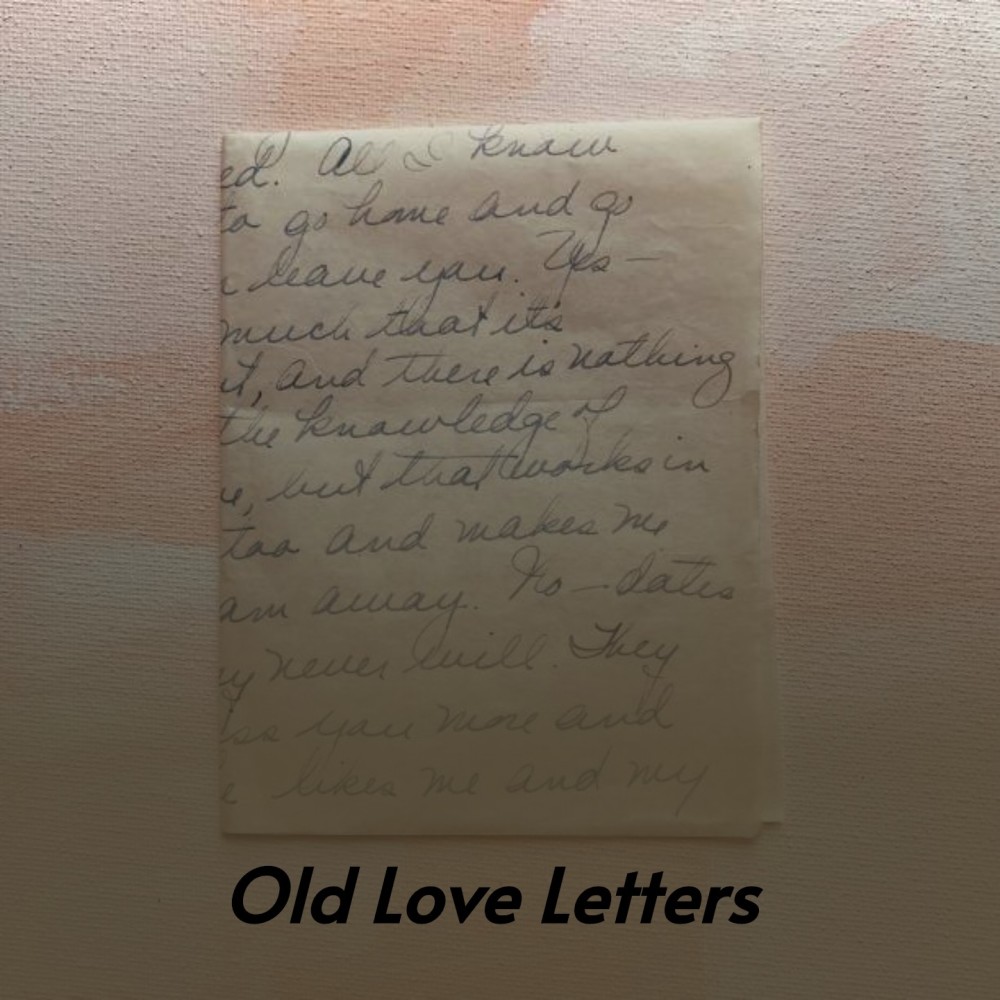 ed. All I know
to go home and go
n leave you. Yes —
much that it's
t, and there is nothing
the knowledge of
e, but that works in
too and makes me
am away. No — dates
ey never will. They
iss you more and
e likes me and my
Old Love Letters